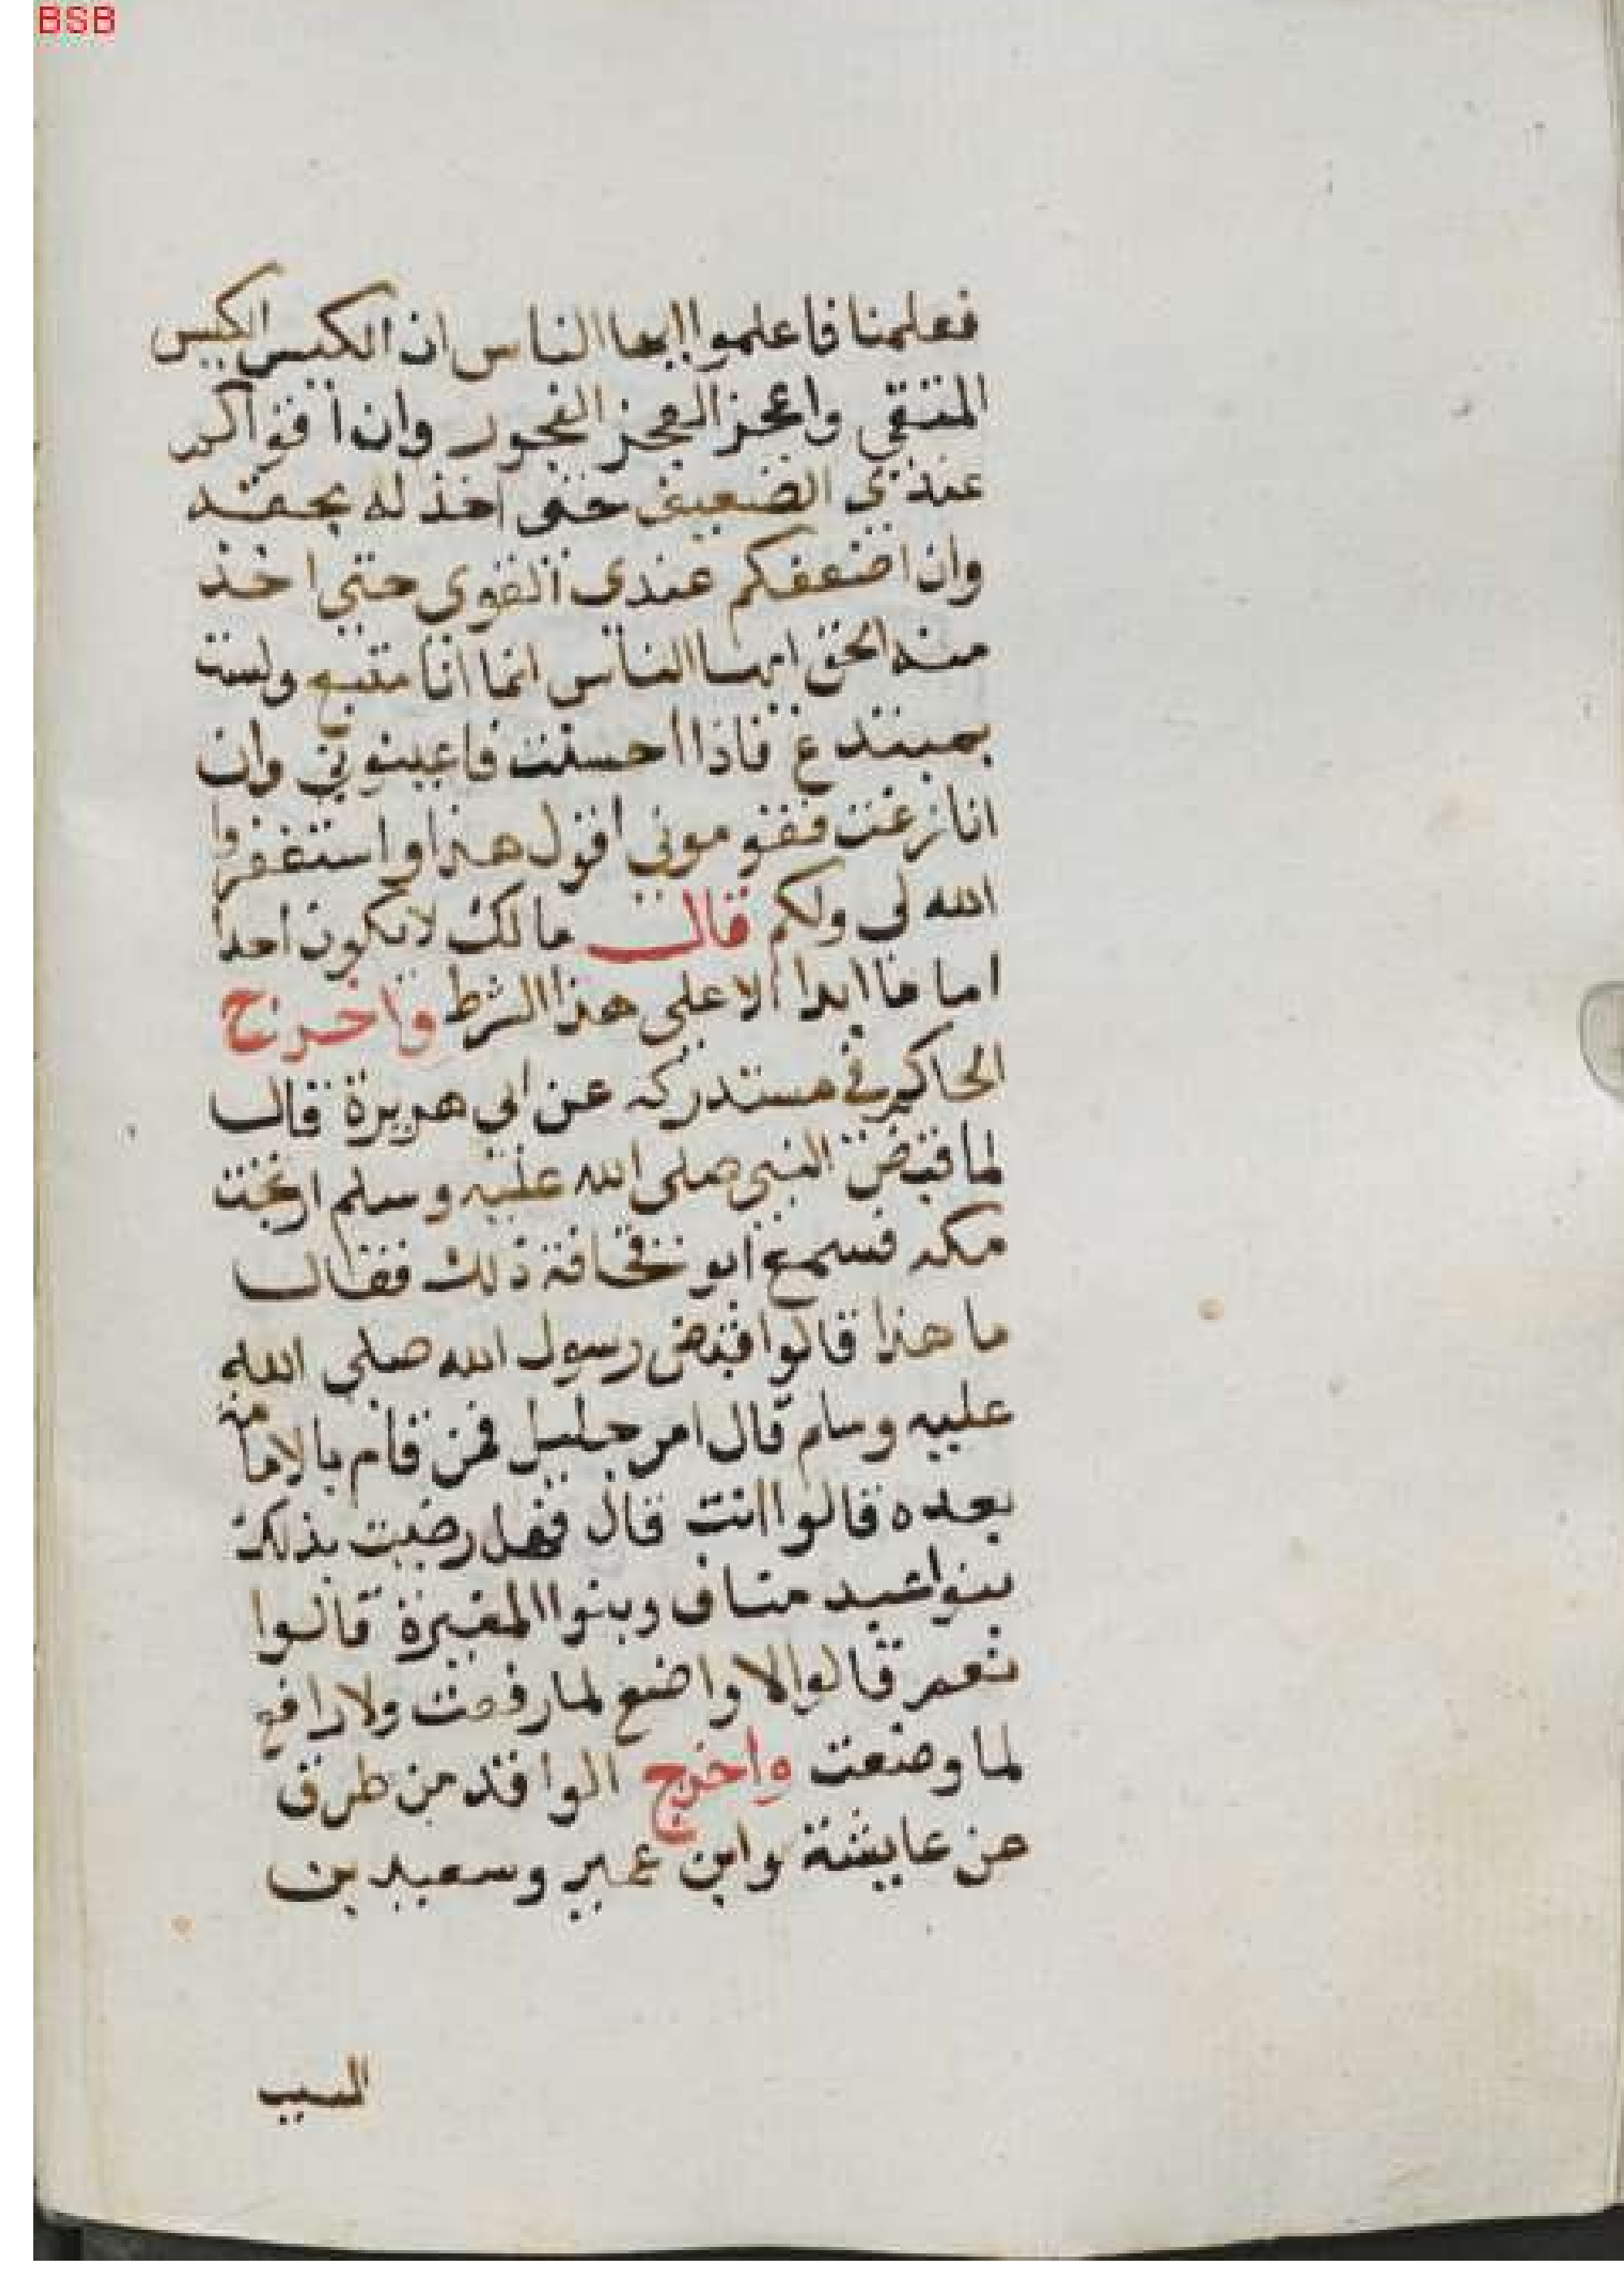 BSB
فعلمنا فاعلموا ايها الناس ان الكيس الكيس
المتقي واعجز العجز الفجور وان اقواكم
عندي الضعيف حتى اخذ له بحقه
وان اضعفكم عندي القوي حتي اخذ
منه الحق ايها الناس انما انا متبع ولست
بمبتدع فاذا احسنت فاعينوني وان
انا زغت فقوموني اقول هذا واستغفر
الله لي ولكم قال مالك لا يكون احدا
اماما ابدا الا على هذا الشرط واخرج
الحاكم في مستدركه عن ابي هريرة قال
لما قبض النبي صلى الله عليه وسلم ارتجت
مكه فسمع ابو قحافة ذلك فقال
ما هذا قالوا قبض رسول الله صلى الله
عليه وسلم قال امر جليل فمن قام بالامامة
بعده قالوا انت قال فهل رضيت بذلك
بنوا عبد مناف وبنوا المغيرة قالوا
نعم قالوا لا واضع لما رفعت ولا رافع
لما وضعت واخرج الواقد من طرق
عن عايشة وابن عمير وسعيد بن
المسيب